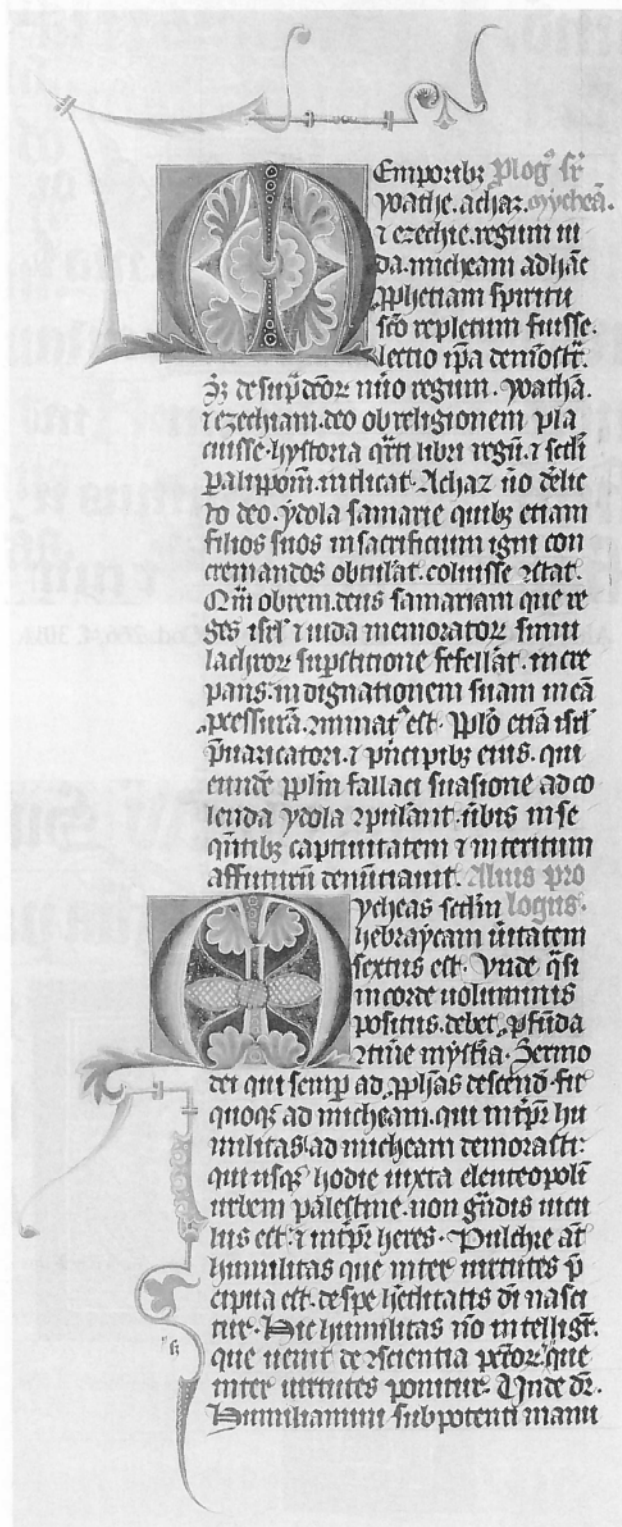 Temporibꝫ Plogꝰ sr̄
yoathe. achaz. mycheā.
⁊ ezechie. regum iu
da. micheam ad hāc
ꝓphetiam spiritu
scō repletum fuisse.
lectio ip̄a demōstr̄.
Qꝫ de sup̄dcōꝝ nūo regum. yoathā.
⁊ ezechiam. deo ob religionem pla
cuisse. hystoria qᵃrti libri regū. ⁊ scd̄i
ꝑalippom̄. indicat. Achaz ūo deīlic
to deo. ydola samarie quibꝫ etiam
filios suos in sacrificium igni con
cremandos obtulāt. coluisse ꝯstat.
Qm̄ ob rem. deus samariam que re
ges isrl̄ ⁊ iuda memoratoꝝ simu
lachroꝝ sup̄sticione fefellāt. incre
pans. indignationem suam in eā
ꝓcessurā. ꝯminatꝰ est. Pplō etiā isrl̄
p̄uaricatori. ⁊ pⁱncipibꝫ eius. qui
eundē pplm̄ fallaci suasione ad co
lenda ydola ꝯpulāut. ūbis in se
qn̄tibꝫ captiuitatem ⁊ interitum
affuturū denūciauit. Alius pro
Mycheas scd̄m logus.
hebraycam ūitatem
sextus est. Vnde qᵃsi
in corde uoluminis
positus. debet ꝓfūda
ꝯtinē mystia. Sermo
dei qui semꝑ ad ꝓphās descend̄ fit
quoqꝫ ad micheam. qui int̄pr̄ hu
militas ad micheam demorasti:
qui usqꝫ hodie iuxta eleuteopolī
urbem palestine. non gᵃndis uicu
lus est: ⁊ int̄pr̄ heres. Pulchre aūt
humilitas que inter uirtutes p̄
cipua est. de spe h̄editatis dn̄i nasci
tur. Hic humilitas nō intelligr̄.
que uenit de ꝯscientia pctōꝝ: que
inter uirtutes ponitur. Unde dr̄.
Humiliamini sub potenti manu